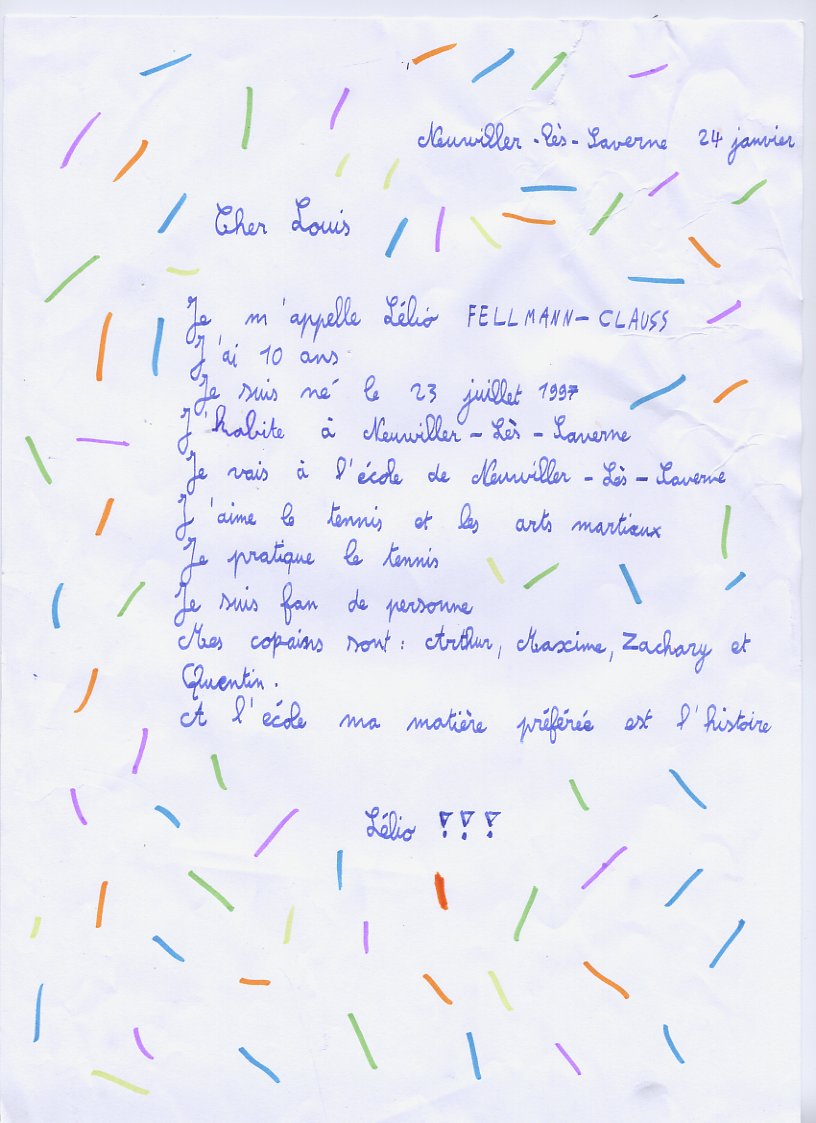 Neuwiller-lès-Saverne 24 janvier
Cher Louis
Je m'appelle Lélio FELLMANN-CLAUSS
J'ai 10 ans
Je suis né le 23 juillet 1997
J'habite à Neuwiller-Lès-Saverne
Je vais à l'école de Neuwiller-Lès-Saverne
J'aime le tennis et les arts martiaux
Je pratique le tennis
Je suis fan de personne
Mes copains sont : Arthur, Maxime, Zachary et
Quentin.
A l'école ma matière préférée est l'histoire
Lélio !!!